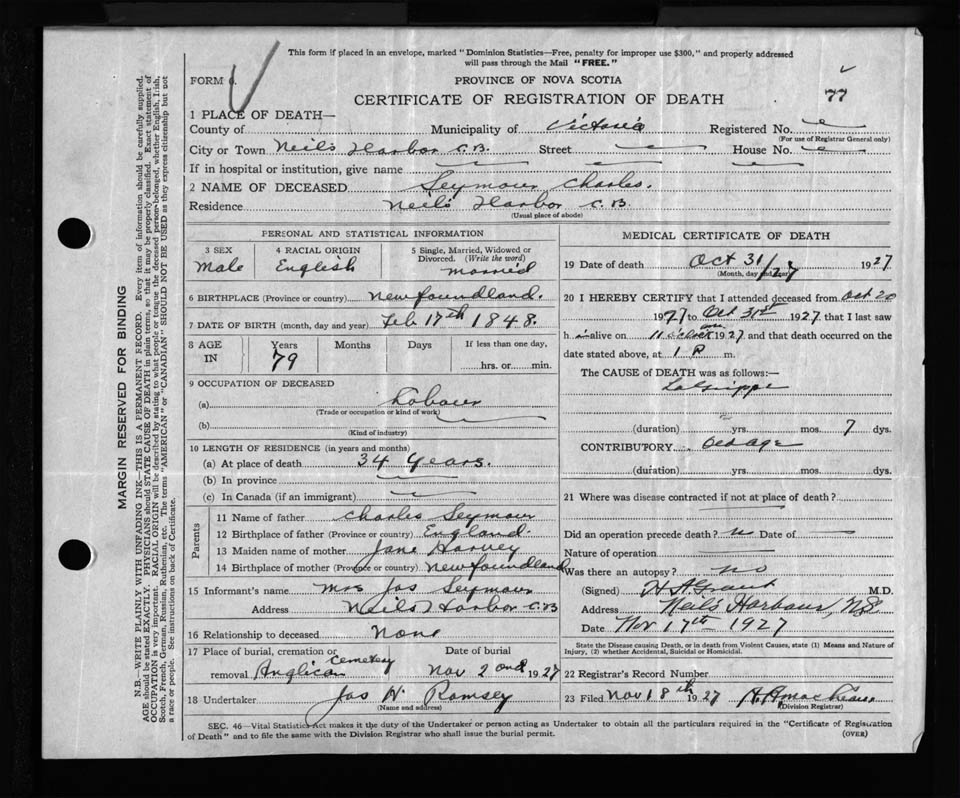 This form if placed in an envelope, marked "Dominion Statistics—Free, penalty for improper use $300," and properly addressed
will pass through the Mail "FREE."
FORM 6.
PROVINCE OF NOVA SCOTIA
77
CERTIFICATE OF REGISTRATION OF DEATH
1 PLACE OF DEATH—
County of Municipality of Victoria Registered No.
(For use of Registrar General only)
City or Town Neil's Harbor C.B. Street House No.
If in hospital or institution, give name
2 NAME OF DECEASED Seymour Charles.
Residence Neil's Harbor C.B.
(Usual place of abode)
PERSONAL AND STATISTICAL INFORMATION
3 SEX 4 RACIAL ORIGIN 5 Single, Married, Widowed or
Divorced. (Write the word)
Male English married
6 BIRTHPLACE (Province or country) Newfoundland.
7 DATE OF BIRTH (month, day and year) Feb 17th 1848.
8 AGE Years Months Days If less than one day,
IN 79 hrs. or min.
9 OCCUPATION OF DECEASED
(a) Labour
(Trade or occupation or kind of work)
(b)
(Kind of industry)
10 LENGTH OF RESIDENCE (in years and months)
(a) At place of death 34 years.
(b) In province
(c) In Canada (if an immigrant)
Parents
11 Name of father Charles Seymour
12 Birthplace of father (Province or country) England
13 Maiden name of mother Jane Harvey
14 Birthplace of mother (Province or country) Newfoundland
15 Informant's name Mrs Jas Seymour
Address Neils Harbor C.B
16 Relationship to deceased None
17 Place of burial, cremation or Date of burial
removal Anglican Cemetery Nov 2nd 1927
18 Undertaker Jas N Ramsey
(Name and address)
MEDICAL CERTIFICATE OF DEATH
19 Date of death Oct 31/27 1927
(Month, day and year)
20 I HEREBY CERTIFY that I attended deceased from Oct 20
1927 to Oct 31st 1927 that I last saw
h alive on 11 o'clock am 1927 and that death occurred on the
date stated above, at 1 P m.
The CAUSE of DEATH was as follows:—
La Grippe
(duration) yrs. mos. 7 dys.
CONTRIBUTORY Old age
(duration) yrs. mos. dys.
21 Where was disease contracted if not at place of death?
Did an operation precede death? no Date of
Nature of operation
Was there an autopsy? no
(Signed) H A Grant M.D.
Address Neil's Harbour, NS
Date Nov 17th 1927
State the Disease causing Death, or in death from Violent Causes, state (1) Means and Nature of
Injury, (2) whether Accidental, Suicidal or Homicidal.
22 Registrar's Record Number
23 Filed Nov 18th 1927
(Division Registrar)
SEC. 46—Vital Statistics Act makes it the duty of the Undertaker or person acting as Undertaker to obtain all the particulars required in the "Certificate of Registration
of Death" and to file the same with the Division Registrar who shall issue the burial permit.
(OVER)
MARGIN RESERVED FOR BINDING
N.B.—WRITE PLAINLY WITH UNFADING INK—THIS IS A PERMANENT RECORD. Every item of information should be carefully supplied.
AGE should be stated EXACTLY. PHYSICIANS should STATE CAUSE OF DEATH in plain terms, so that it may be properly classified. Exact statement of
OCCUPATION is very important. RACIAL ORIGIN will be described by stating to what people or tongue the deceased person belonged, whether English, Irish,
Scotch, French, German, Russian, Ruthenian, etc. The terms "AMERICAN" or "CANADIAN" SHOULD NOT BE USED as they express citizenship but not
a race or people. See instructions on back of Certificate.